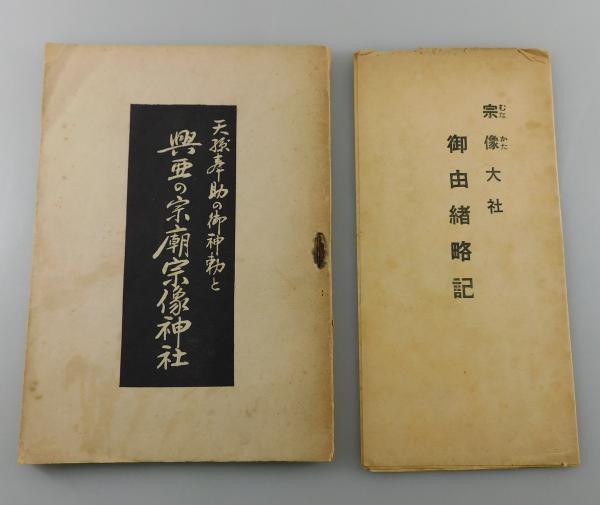 天孫奉助の御神勅と
興亜の宗廟宗像神社
宗像大社
むな かた
御由緒略記